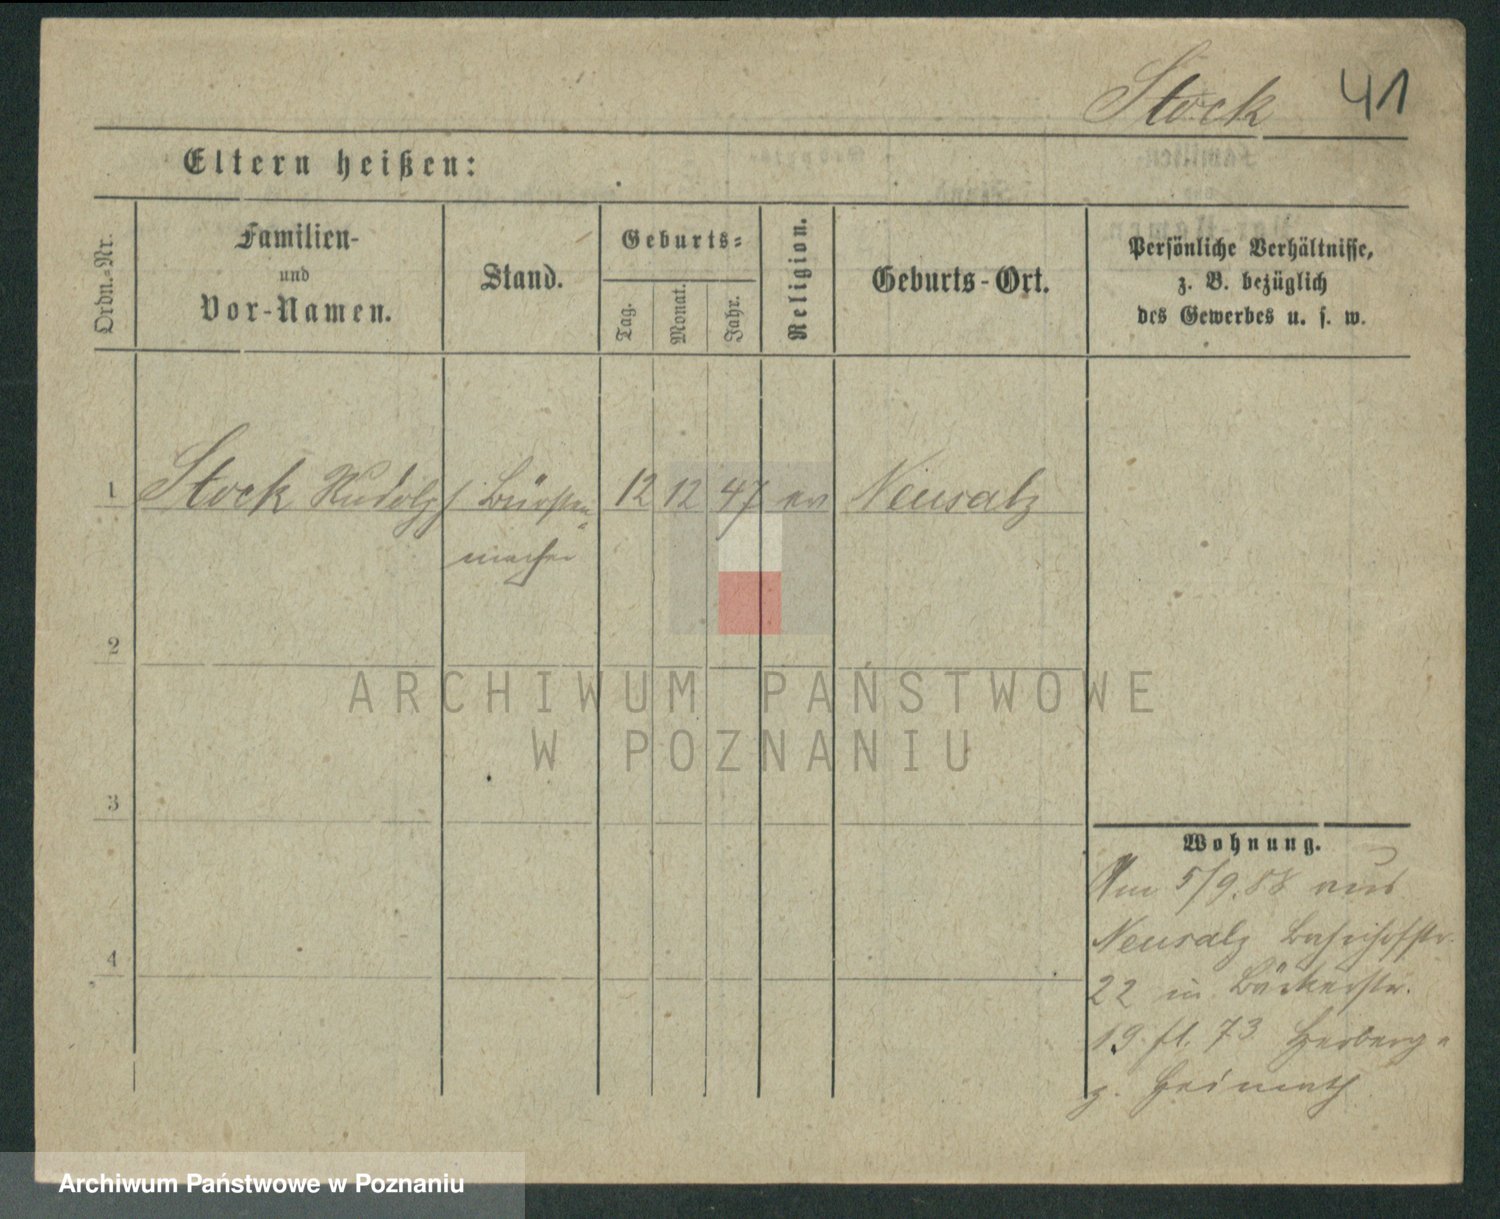 Stock 41
Eltern heißen:
Ordn.-Nr.
Familien-
und
Vor-Namen.
Stand.
Geburts-
Tag.
Monat.
Jahr.
Religion.
Geburts-Ort.
Persönliche Verhältnisse,
z. B. bezüglich
des Gewerbes u. s. w.
1 Stock Rudolph Bürsten- 12 12 47 ev Neusalz
macher
2
3
4
Wohnung.
Am 5/9.88 aus
Neusalz Bahnhofstr.
22 in Bäckerstr.
19. fl. 73 Herberg-
z. Heimath
ARCHIWUM PAŃSTWOWE
W POZNANIU
Archiwum Państwowe w Poznaniu